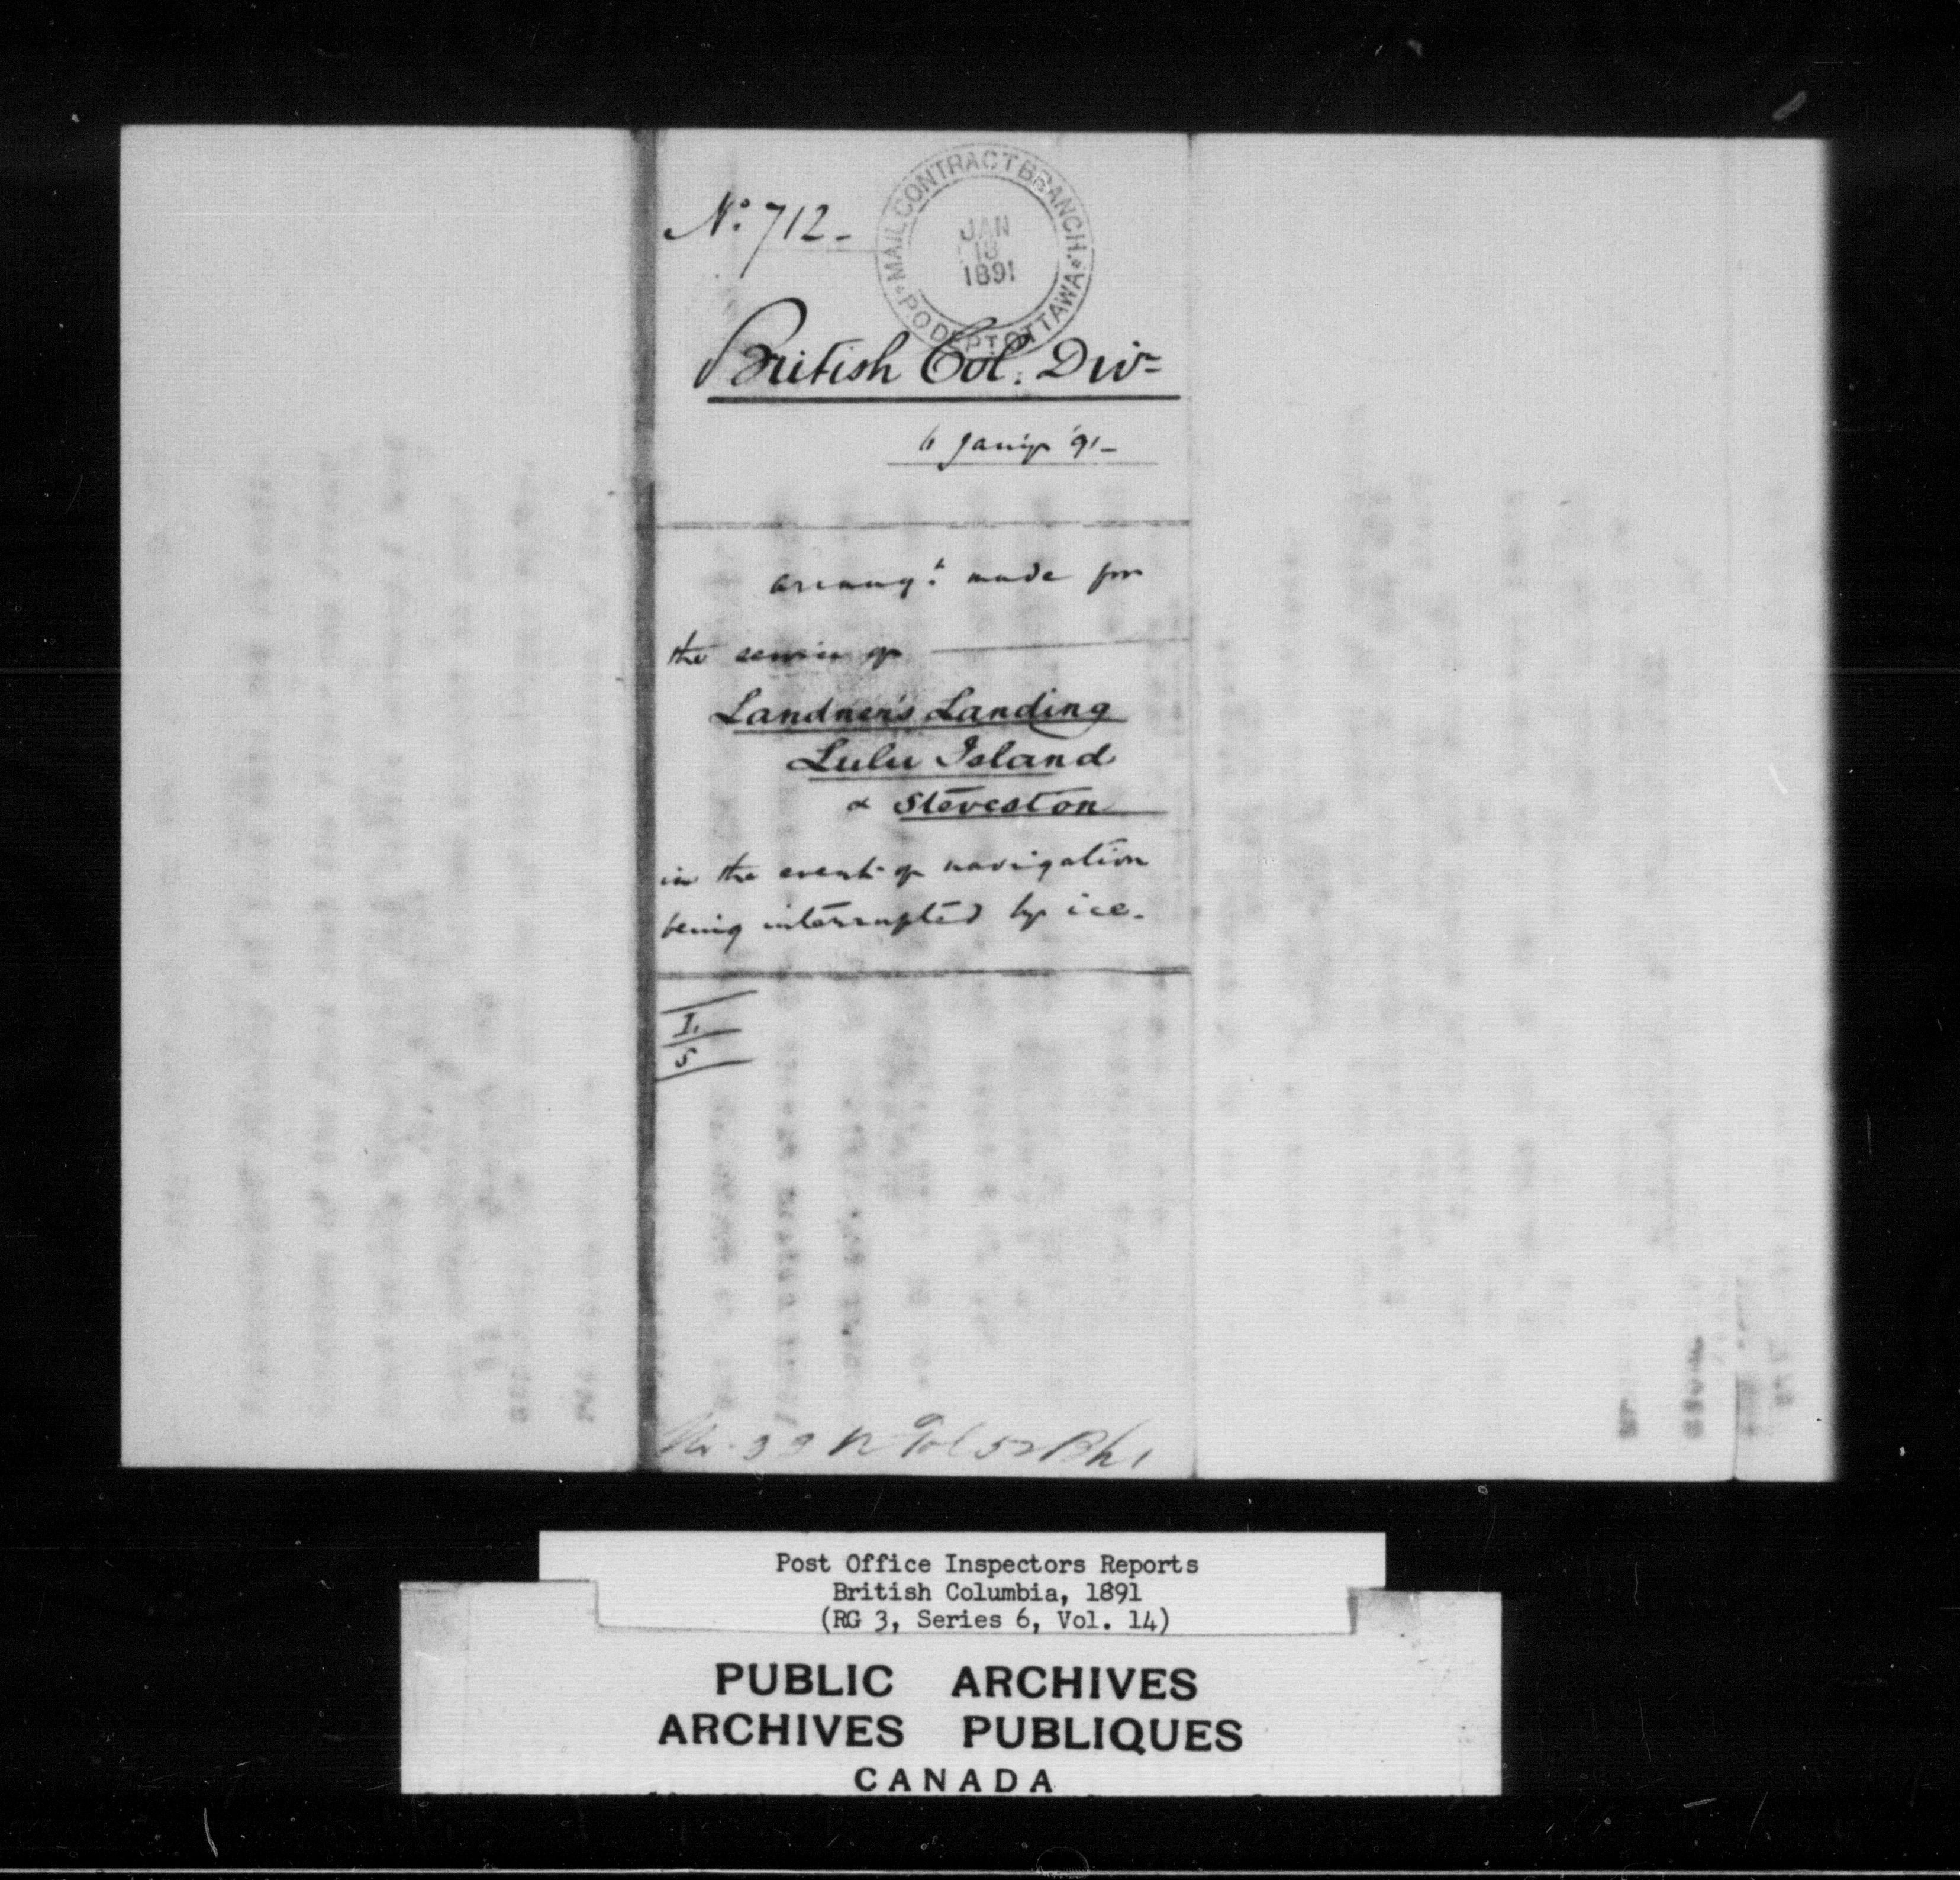 No. 712-
MAIL CONTRACT BRANCH
P.O DEPT OTTAWA
JAN
13
1891
British Col: Divn
Jany '91-
arrangt. made for
the service of
Landner's Landing
Lulu Island
& Steveston
in the event of navigation
being interrupted by ice.
I.
5
Post Office Inspectors Reports
British Columbia, 1891
(RG 3, Series 6, Vol. 14)
PUBLIC ARCHIVES
ARCHIVES PUBLIQUES
CANADA